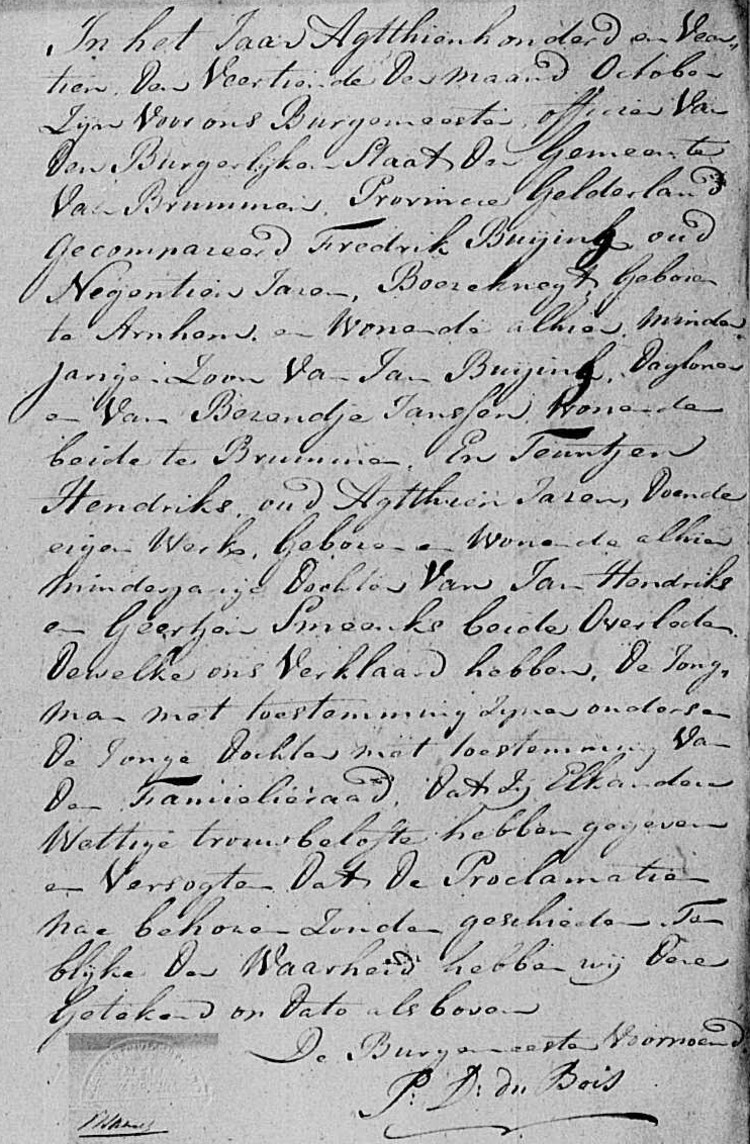 In het Jaar Agtthienhonderd en Veer„
tien, den Veertiende der maand October
Zijn Voor ons Burgemeester, officier Van
den Burgerlijken Staat der Gemeente
Van Brummen, Provincie Gelderland
gecompareerd Fredrik Buijing, oud
Negentien Jaren, Boereknegt, Geboren
te Arnhem, en Wonende alhier, minder
jarigen Zoon Van Jan Buijing, Dagloner
en Van Berendje Janssen, Wonende
beide te Brummen, En Teuntjen
Hendriks, oud Agtthien Jaren, Doende
eigen Werk, Geboren en Wonende alhier
minderjarige Dochter Van Jan Hendriks
en Geertjen Smeenks beide Overleden.
Dewelke ons Verklaard hebben, De Jong„
man met toestemming Zijner ouders en
De Jonge Dochter met toestemming Van
Den Famielieraad, Dat Zij Elkanderen
Wettige trouwbelofte hebben gegeven
en Versogten Dat De Proclamatien
nae behoren Zouden geschieden Ten
blijke Der Waarheid hebben wij Deze
Getekend op Dato als boven
De Burgemeester Voornoemd
P: D: du Bois